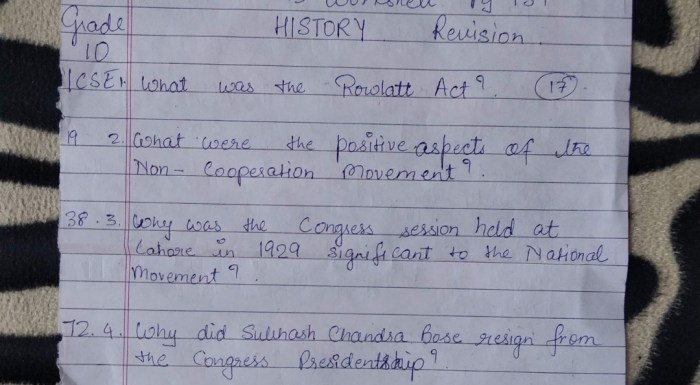 Grade HISTORY Revision.
10
ICSE 1. What was the Rowlatt Act? 17.
19 2. What were the positive aspects of the
Non - Cooperation Movement?.
38. 3. Why was the Congress session held at
Lahore in 1929 significant to the National
Movement?.
72. 4. Why did Subhash Chandra Bose resign from
the Congress Presidentship?